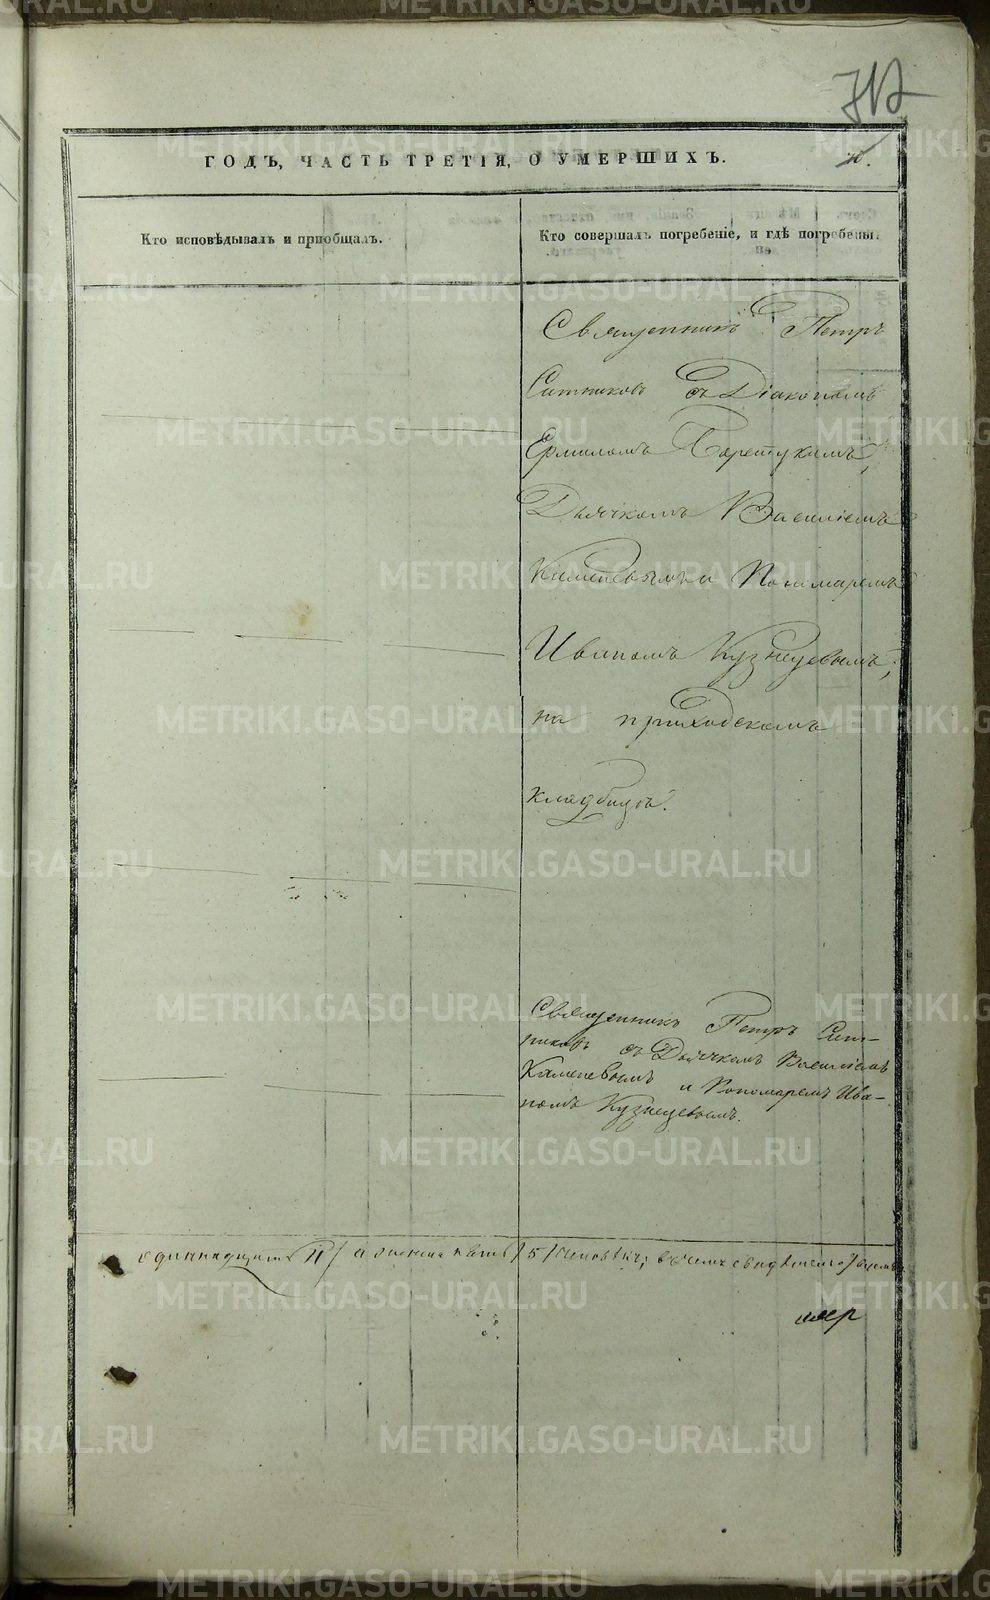 712
ГОДЪ, ЧАСТЬ ТРЕТІЯ, О УМЕРШИХЪ.
Кто исповѣдывалъ и приобщалъ.
Кто совершалъ погребеніе, и гдѣ погребены.
Священникъ Петръ
Ситниковъ съ Діакономъ
Ермиломъ
Дьячкомъ Василіемъ
Каменевымъ и Пономаремъ
Иваномъ Кузнецовымъ,
на приходскомъ
кладбищѣ.
Священникъ Петръ Сит-
никовъ съ Дьячкомъ Василіемъ
Каменевымъ и Пономаремъ Ива-
номъ Кузнецевымъ.
одиннадцать 11/ а обоего пять /5/ человѣкъ; въ чемъ свидѣтель
METRIKI.GASO-URAL.RU